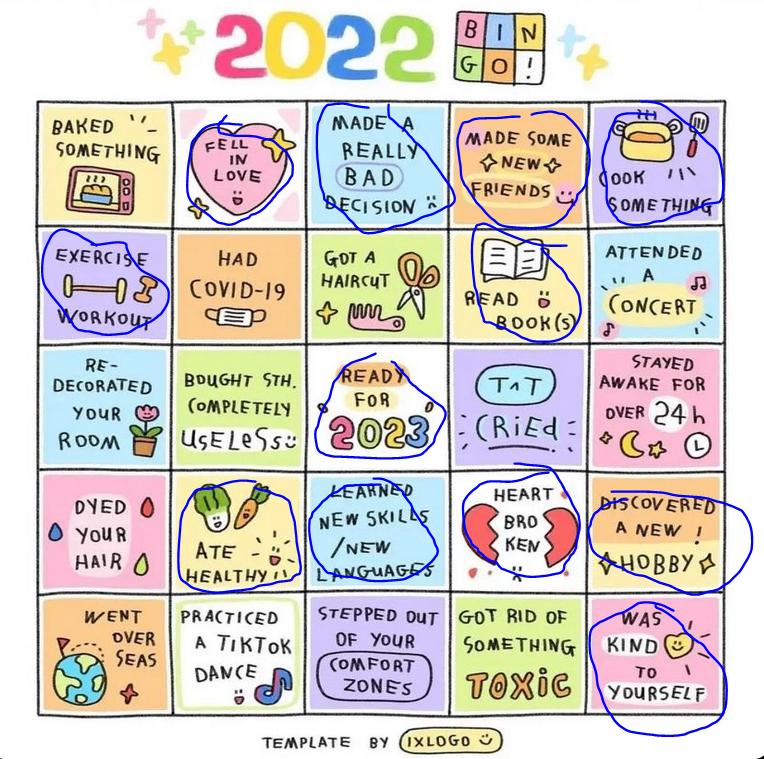 2022 BIN
GO!
BAKED
SOMETHING
FELL
IN
LOVE
MADE A
REALLY
BAD
DECISION
MADE SOME
NEW
FRIENDS
COOK
SOMETHING
EXERCISE
WORKOUT
HAD
COVID-19
GOT A
HAIRCUT
READ
BOOK(S)
ATTENDED
A
CONCERT
RE-
DECORATED
YOUR
ROOM
BOUGHT STH.
COMPLETELY
USELESS
READY
FOR
2023
T^T
CRIED
STAYED
AWAKE FOR
OVER 24h
DYED
YOUR
HAIR
ATE
HEALTHY!!
LEARNED
NEW SKILLS
/NEW
LANGUAGES
HEART
BRO
KEN
DISCOVERED
A NEW !
HOBBY
WENT
OVER
SEAS
PRACTICED
A TIKTOK
DANCE
STEPPED OUT
OF YOUR
COMFORT
ZONES
GOT RID OF
SOMETHING
TOXIC
WAS
KIND
TO
YOURSELF
TEMPLATE BY IXLOGO